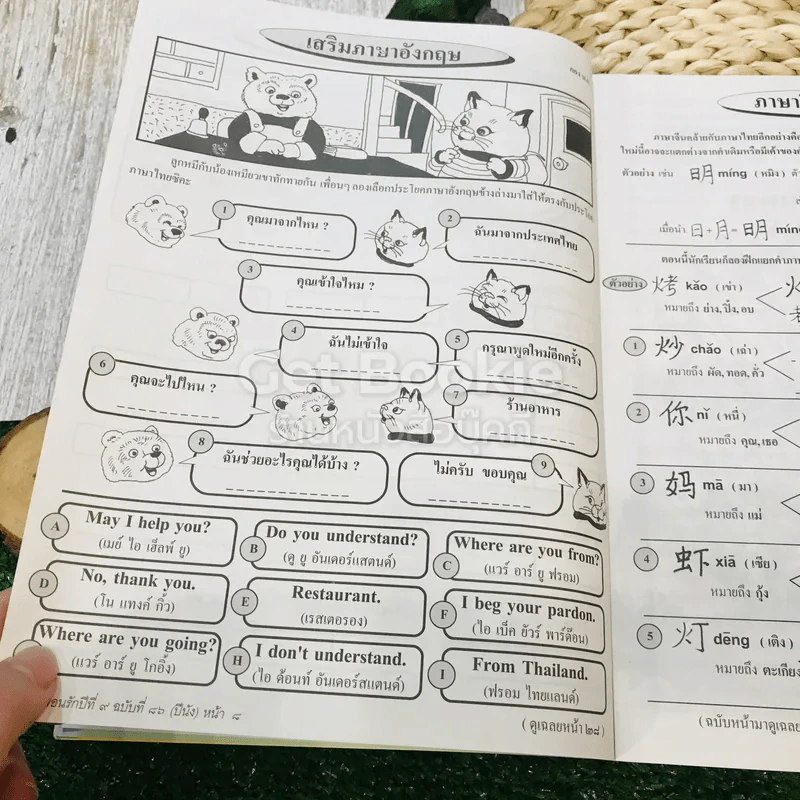 เสริมภาษาอังกฤษ
ลูกหมีกับน้องเหมียวเขาทักทายกัน เพื่อนๆ ลองเลือกประโยคภาษาอังกฤษข้างล่างมาใส่ให้ตรงกับประโยค
ภาษาไทยซิคะ
1 คุณมาจากไหน ?
2 ฉันมาจากประเทศไทย
3 คุณเข้าใจไหม ?
4 ฉันไม่เข้าใจ
5 กรุณาพูดใหม่อีกครั้ง
6 คุณจะไปไหน ?
7 ร้านอาหาร
8 ฉันช่วยอะไรคุณได้บ้าง ?
9 ไม่ครับ ขอบคุณ
Get Bookie
ร้านหนังสือบุ๊คกี้
A May I help you?
(เมย์ ไอ เฮ็ลพ์ ยู)
B Do you understand?
(ดู ยู อันเดอร์แสตนด์)
C Where are you from?
(แวร์ อาร์ ยู ฟรอม)
D No, thank you.
(โน แทงค์ กิ้ว)
E Restaurant.
(เรสเตอรอง)
F I beg your pardon.
(ไอ เบ็ค ยัวร์ พาร์ด๊อน)
Where are you going?
(แวร์ อาร์ ยู โกอิ้ง)
H I don't understand.
(ไอ ด้อนท์ อันเดอร์สแตนด์)
I From Thailand.
(ฟรอม ไทยแลนด์)
อนรักปีที่ ๙ ฉบับที่ ๘๖ (ปีนัง) หน้า ๘
(ดูเฉลยหน้า ๒๘)
ภาษาจีนคล้ายกับภาษาไทยอีกอย่างคือ
ใหม่นี้อาจจะแตกต่างจากคำเดิมหรือมีเค้าของ
ตัวอย่าง เช่น 明 míng (หมิง)
เมื่อนำ 日 + 月 = 明 míng
ตอนนี้นักเรียนก็ลองฝึกแยกคำภา
ตัวอย่าง 烤 kǎo (เข่า)
หมายถึง ย่าง, ปิ้ง, อบ
1 炒 chǎo (เฉ่า)
หมายถึง ผัด, ทอด, คั่ว
2 你 nǐ (หนี่)
หมายถึง คุณ, เธอ
3 妈 mā (มา)
หมายถึง แม่
4 虾 xiā (เซีย)
หมายถึง กุ้ง
5 灯 dēng (เติง)
หมายถึง ตะเกียง
(ฉบับหน้ามาดูเฉลย